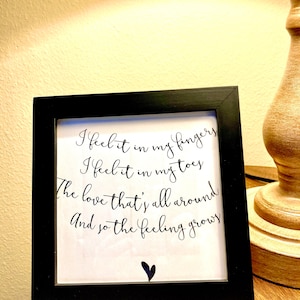 I feel it in my fingers
I feel it in my toes
The love that's all around
And so the feeling grows